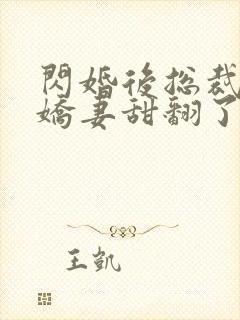 閃婚後總裁
嬌妻甜翻了
王凱